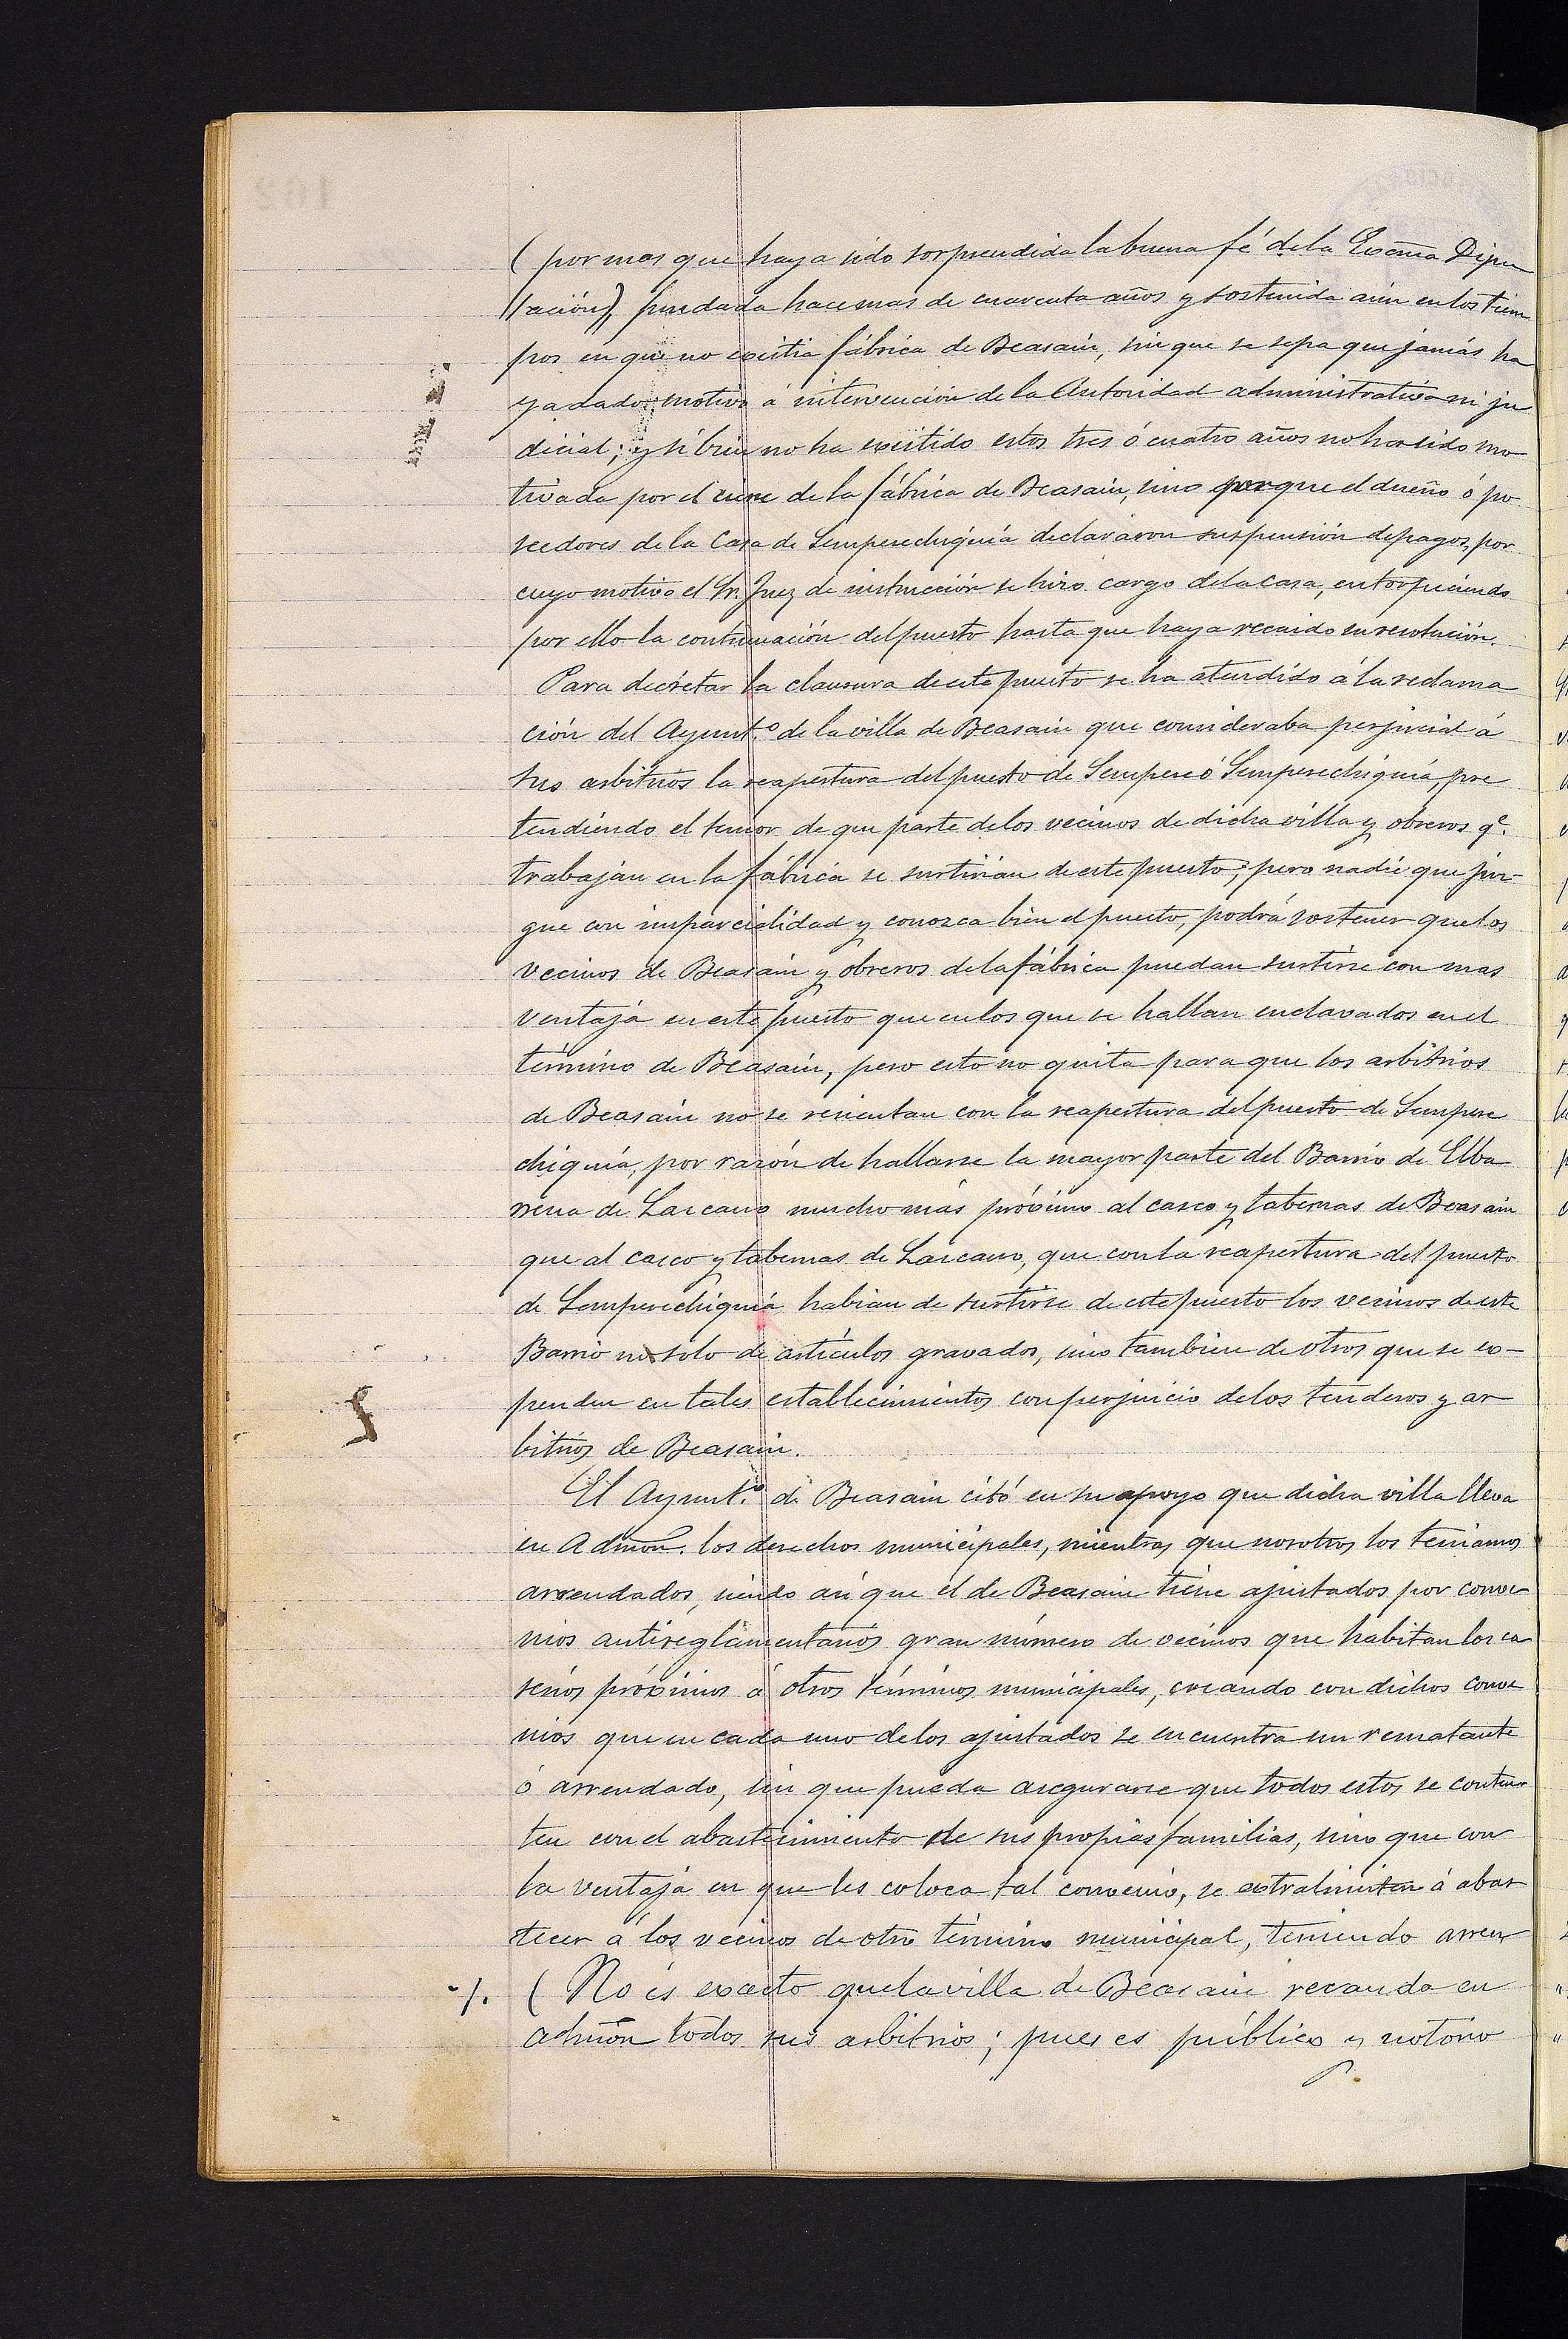 (por mas que haya sido sorprendida la buena fé de la Excma Dipu
tación), fundada hace mas de cuarenta años y sostenida aún en los tiem
pos en que no existia fábrica de Beasain, sin que se sepa que jamás ha
ya dado motivo á intervención de la Autoridad administrativa ni ju
dicial; y si bien no ha existido estos tres ó cuatro años no ha sido mo
tivada por el cierre de la fábrica de Beasain, sino porque el dueño ó po
seedores de la Casa de Semperechiquia declararon suspensión de pagos, por
cuyo motivo el Sr. Juez de instrucción se hizo cargo de la casa, entorpeciendo
por ello la continuación del puesto hasta que haya recaido su resolución.
Para decretar la clausura de este puesto se ha atendido á la reclama
ción del Ayunt.º de la villa de Beasain que consideraba perjucial á
sus arbitrios la reapertura del puesto de Sempere ó Semperechiquia, pre
tendiendo el temor de que parte de los vecinos de dicha villa y obreros q.e
trabajan en la fábrica se surtirian de este puesto; pero nadie que juz-
gue con imparcialidad y conozca bien el puesto, podrá sostener que los
vecinos de Beasain y obreros de la fábrica puedan surtirse con mas
ventaja en este puesto que en los que se hallan enclavados en el
término de Beasain, pero esto no quita para que los arbitrios
de Beasain no se resientan con la reapertura del puesto de Sempere
chiquia, por razón de hallarse la mayor parte del Barrio de Elba
rrena de Lazcano mucho más próximo al casco y tabernas de Beasain
que al casco y tabernas de Lazcano, que con la reapertura del puesto
de Semperechiquia habian de surtirse de este puesto los vecinos de este
Barrio no solo de artículos gravados, sino tambien de otros que se ex-
penden en tales establecimientos con perjuicio de los tenderos y ar
bitrios de Beasain.
El Ayunt.º de Beasain citó en su apoyo que dicha villa lleva
en Admon. los derechos municipales, mientras que nosotros los teniamos
arrendados, siendo asi que el de Beasain tiene ajustados por conve
nios antireglamentarios gran número de vecinos que habitan los ca
serios próximos á otros términos municipales, creando con dichos conve
nios que en cada uno de los ajustados se encuentra un rematante
ó arrendado, sin que pueda asegurarse que todos estos se conten
ten con el abastecimiento de sus propias familias, sino que con
la ventaja en que les coloca tal convenio, se extralimiten á abas
tecer á los vecinos de otro término municipal, teniendo arren
-/. (No es exacto que la villa de Beasain recauda en
admón todos sus arbitrios; pues es público y notorio